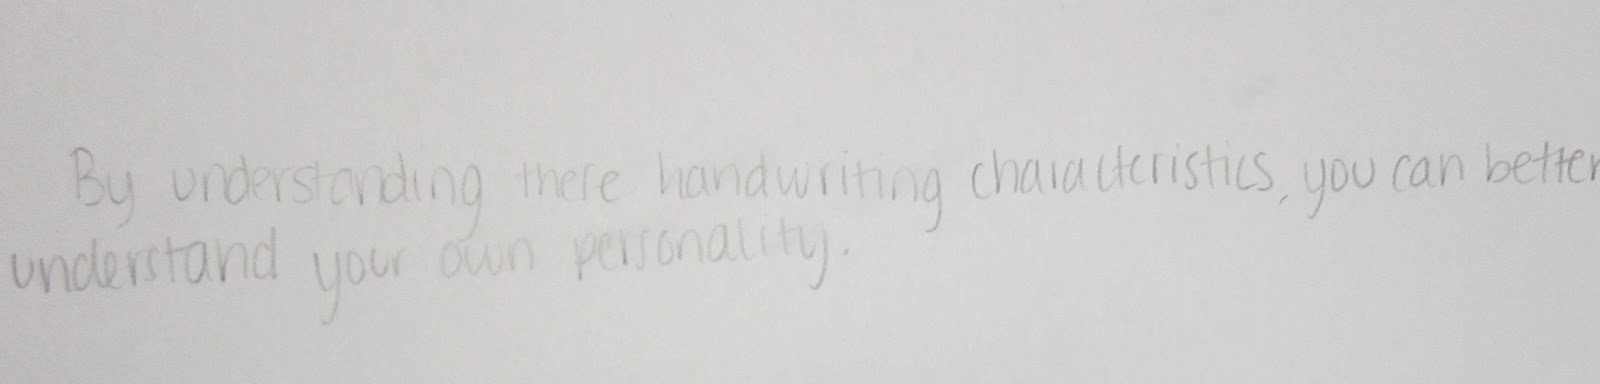 By understanding these handwriting characteristics, you can better
understand your own personality.